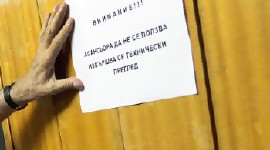 ВНИМАНИЕ!!!
АСАНСЬОРА ДА НЕ СЕ ПОЛЗВА
ИЗВЪРШВА СЕ ТЕХНИЧЕСКИ
ПРЕГЛЕД